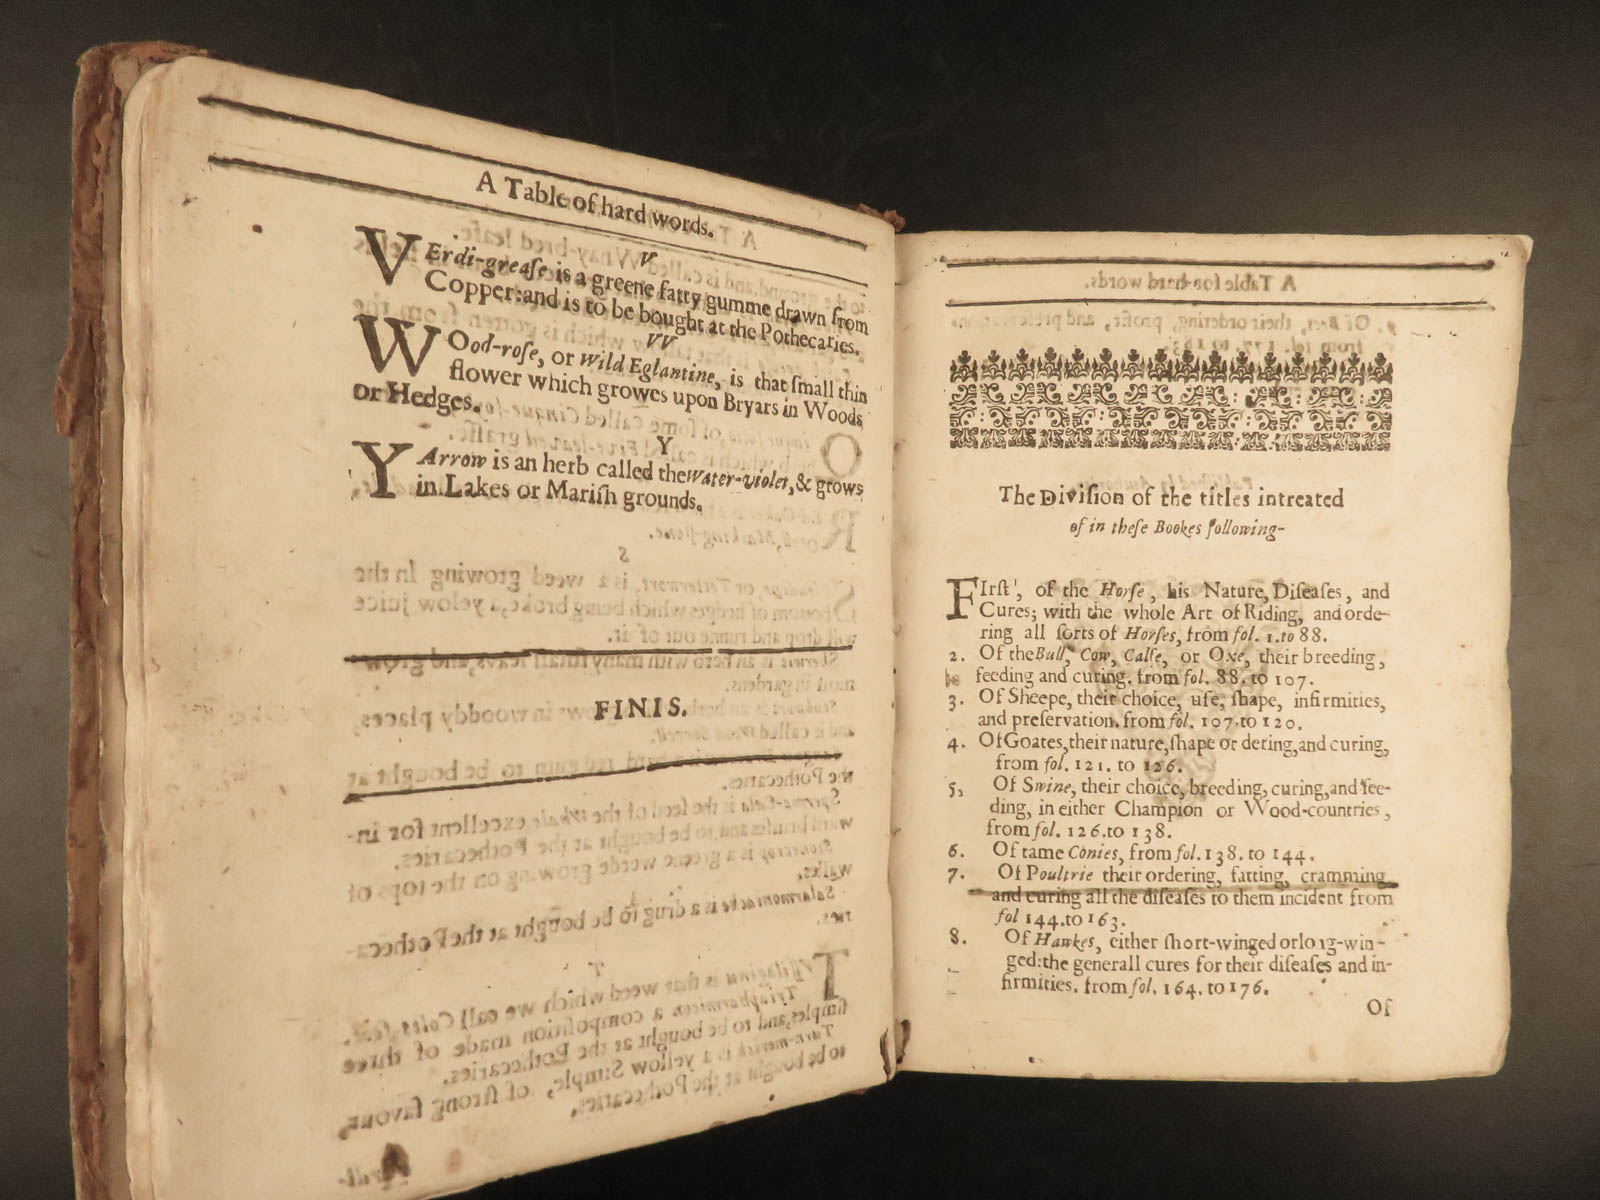 A Table of hard words.
V
VErdi-greaſe is a greene fatty gumme drawn from
Copper: and is to be bought at the Pothecaries.
VV
WOod-roſe, or Wild Eglantine, is that ſmall thin
flower which growes upon Bryars in Woods
or Hedges.
Y
YArrow is an herb called the Water-violet, & grows
in Lakes or Mariſh grounds.
FINIS.
The Diviſion of the titles intreated
of in theſe Bookes following-
FIrſt, of the Horſe, his Nature, Diſeaſes, and
Cures; with the whole Art of Riding, and orde-
ring all ſorts of Horſes, from fol. 1. to 88.
2. Of the Bull, Cow, Calfe, or Oxe, their breeding,
feeding and curing. from fol. 88. to 107.
3. Of Sheepe, their choice, uſe, ſhape, infirmities,
and preſervation. from fol. 107. to 120.
4. Of Goates, their nature, ſhape or dering, and curing,
from fol. 121. to 126.
5, Of Swine, their choice, breeding, curing, and fee-
ding, in either Champion or Wood-countries,
from fol. 126. to 138.
6. Of tame Conies, from fol. 138. to 144.
7. Of Poultrie their ordering, fatting, cramming
and curing all the diſeaſes to them incident from
fol 144. to 163.
8. Of Hawkes, either ſhort-winged or long-win-
ged: the generall cures for their diſeaſes and in-
firmities. from fol. 164. to 176.
Of